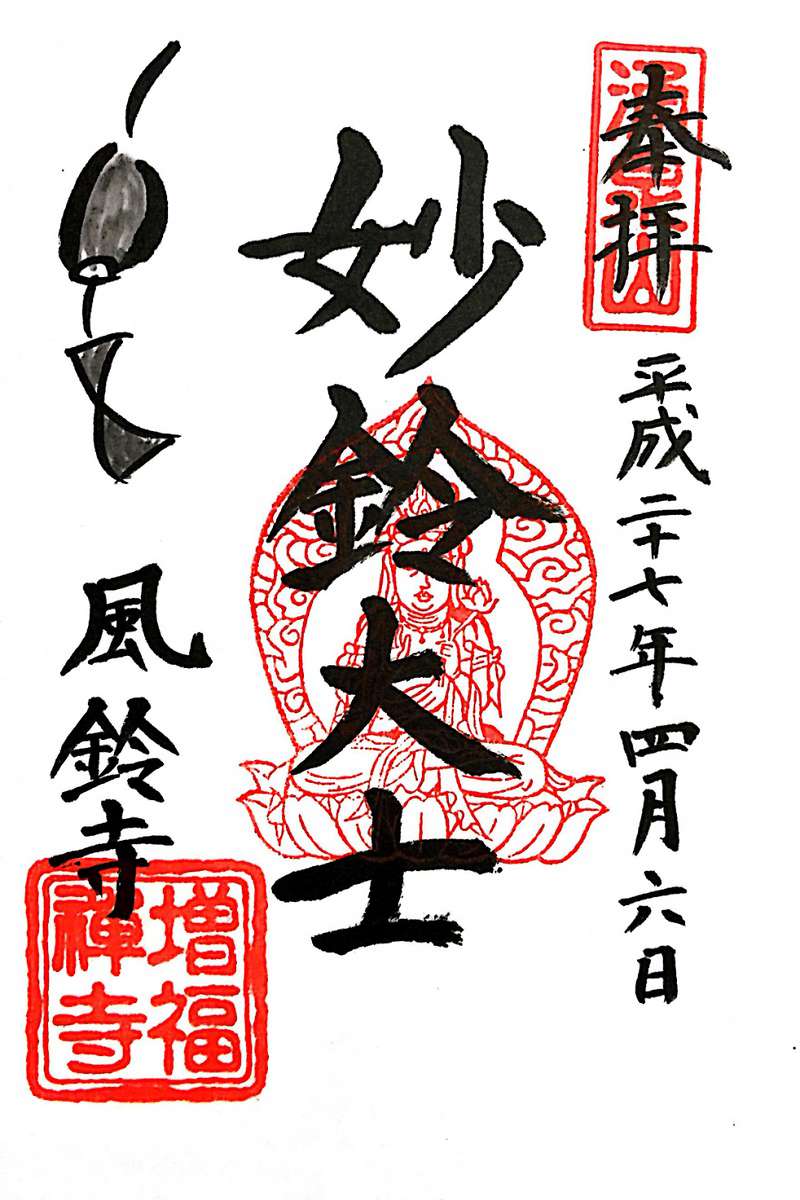 奉拝
平成二十七年四月六日
妙鈴大士
風鈴寺
増福
禅寺